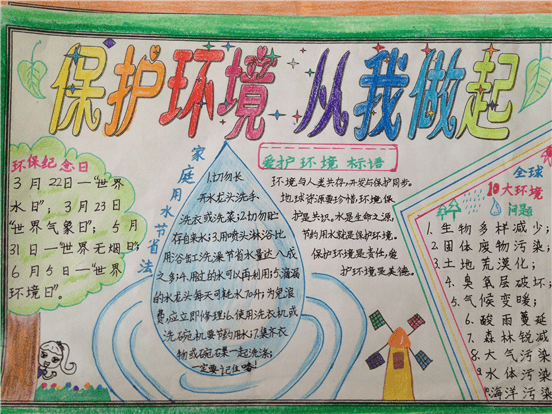 保护环境 从我做起
环保纪念日
3月22日—"世界
水日"；3月23日
"世界气象日"；5月
31日—"世界无烟日"；
6月5日—"世界
环境日"。
家庭用水节省法
1.切勿长
开水龙头洗手、
洗衣或洗菜；2.切勿贮
存自来水；3.用喷头淋浴比
用浴缸洗澡节省水量达八成
之多；4.用过的水可以再利用；5.滴漏
的水龙头每天可耗水70升，为免浪
费，应立即修理；6.使用洗衣机或
洗碗机要节约用水；7.集齐衣
物或碗碟一起洗涤；
一定要记住噢！
爱护环境 标语
环境与人类共存，开发与保护同步。
地球资源要珍惜，环境保
护是共识。水是生命之源，
节约用水就是保护环境。
保护环境是责任，爱
护环境是美德。
全球
10大环境
问题
1.生物多样减少；
2.固体废物污染
3.土地荒漠化；
4.臭氧层破坏；
5.气候变暖；
6.酸雨蔓延
7.森林锐减
8.大气污染
9.水体污染
海洋污染